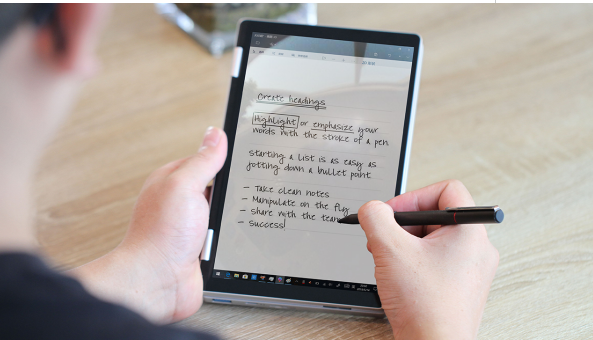 Create headings
Highlight or emphasize your
words with the stroke of a pen
starting a list is as easy as
jotting down a bullet point
- Take clean notes
- Manipulate on the fly
- share with the team
- success!